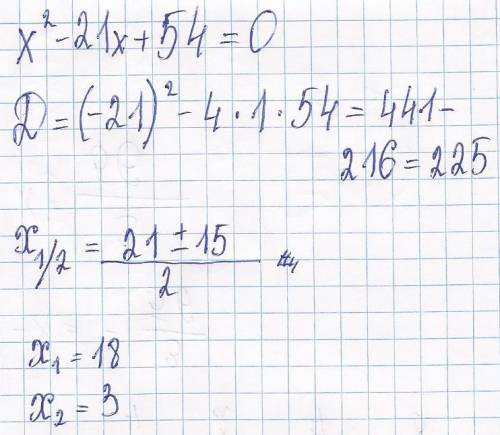 x² - 21x + 54 = 0
D = (-21)² - 4 · 1 · 54 = 441 -
216 = 225
x₁/₂ = (21 ± 15)/2
x₁ = 18
x₂ = 3